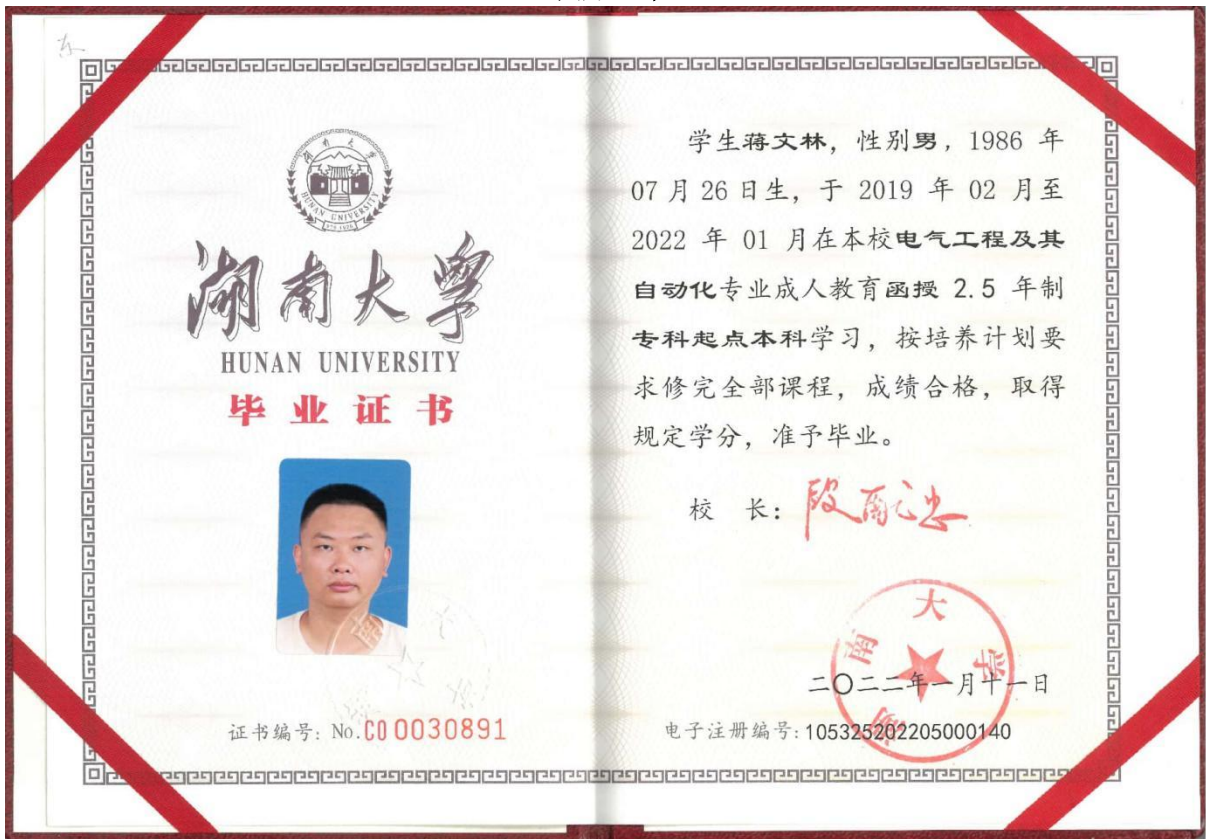 湖南大学
HUNAN UNIVERSITY
湖南大学
HUNAN UNIVERSITY
毕业证书
证书编号: No.C0 0030891
学生蒋文林，性别男，1986 年
07 月 26 日生，于 2019 年 02 月至
2022 年 01 月在本校电气工程及其
自动化专业成人教育函授 2.5 年制
专科起点本科学习，按培养计划要
求修完全部课程，成绩合格，取得
规定学分，准予毕业。
校 长: 段献忠
湖南大学
二〇二二年一月十一日
电子注册编号: 105325202205000140